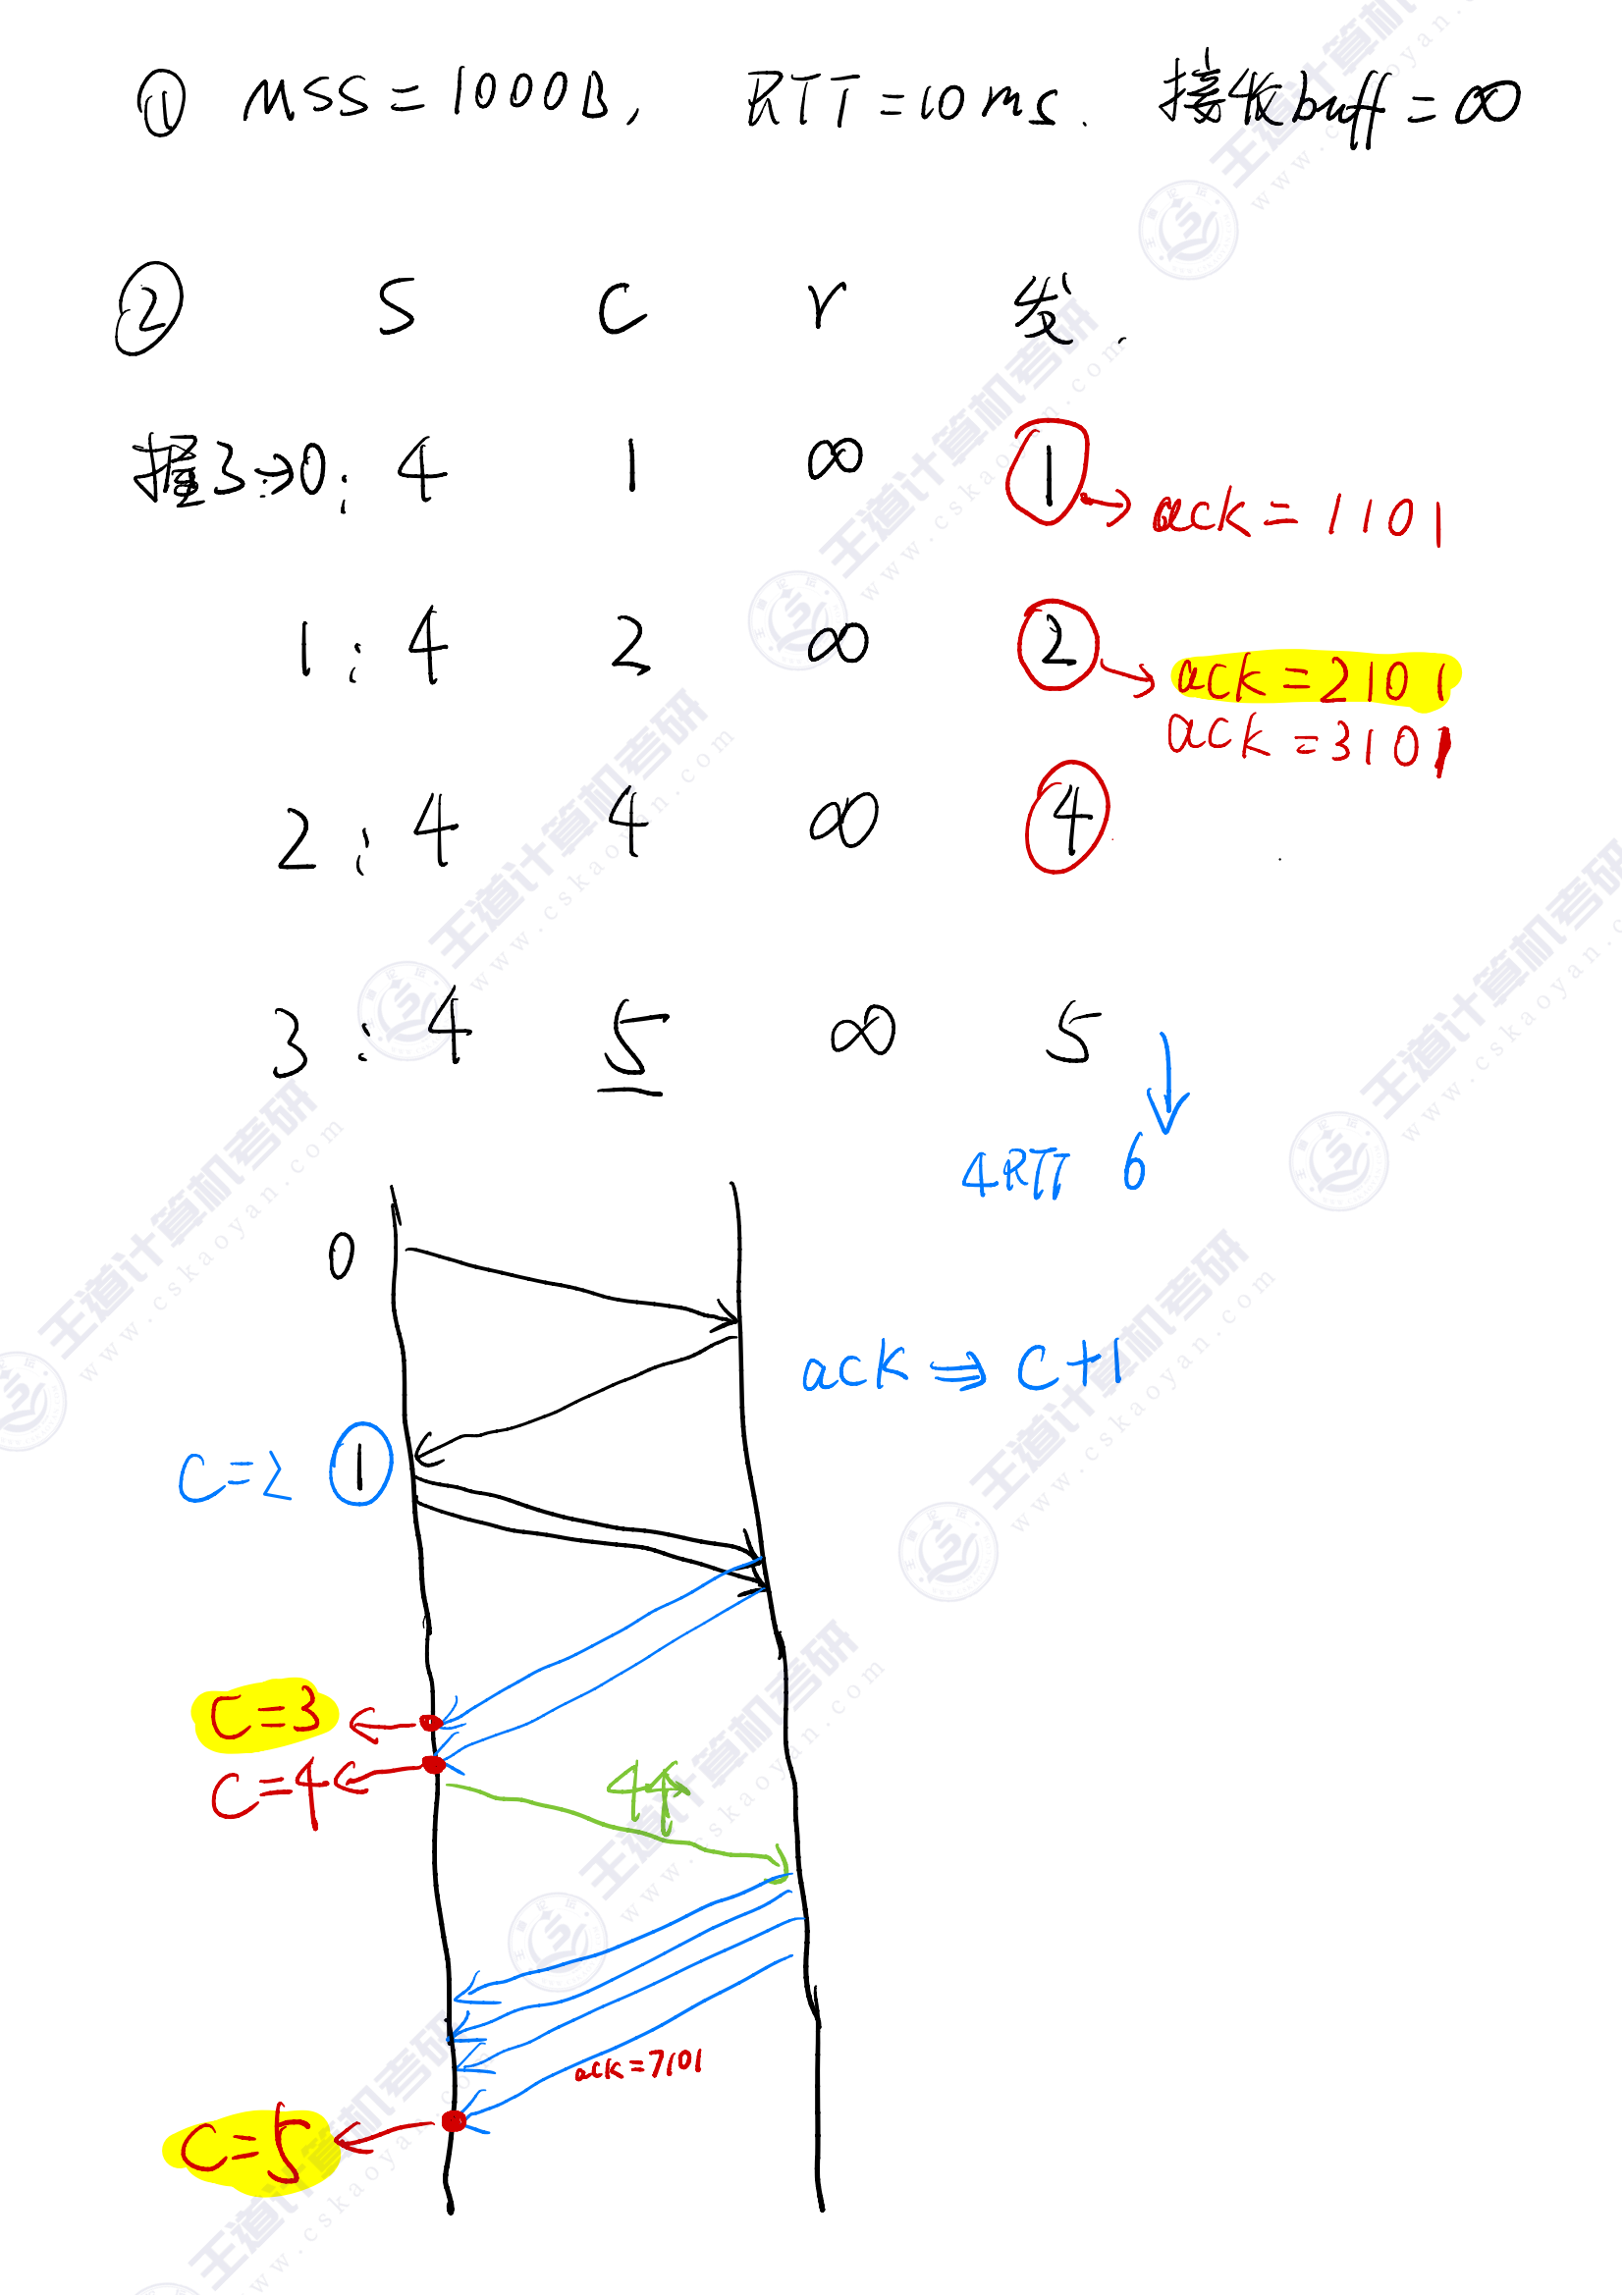 ① MSS=1000B, RTT=10ms. 接收buff=∞
② S C r 发.
握3→0: 4 1 ∞ ① → ack=1101
1: 4 2 ∞ ② → ack=2101
ack=3101
2: 4 4 ∞ ④
3: 4 5 ∞ 5
↓
4RTT 6
0
ack ⇒ C+1
C=2 ①
C=3 ←
C=4 ←
4个
ack=7101
C=5 ←
王道计算机考研
www.cskaoyan.com